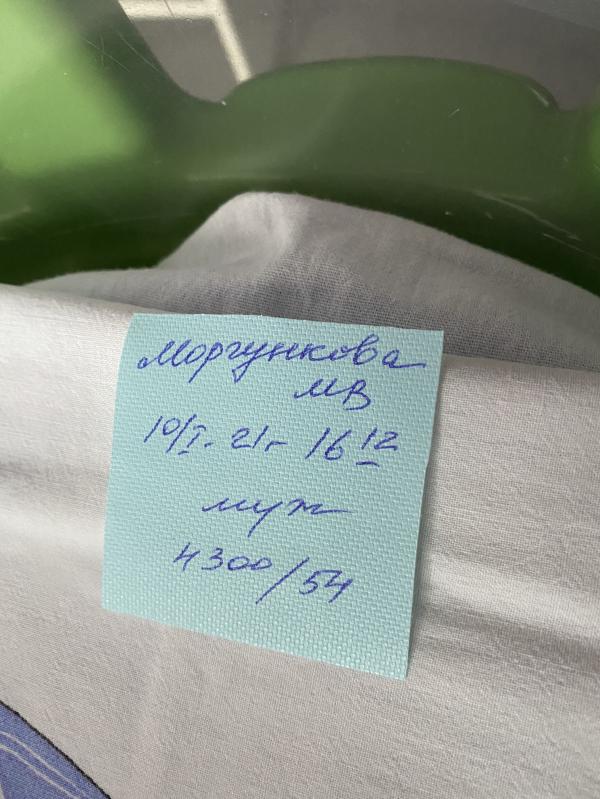 Моргункова
МВ
10/I. 21г 16 12
муж
4300/54